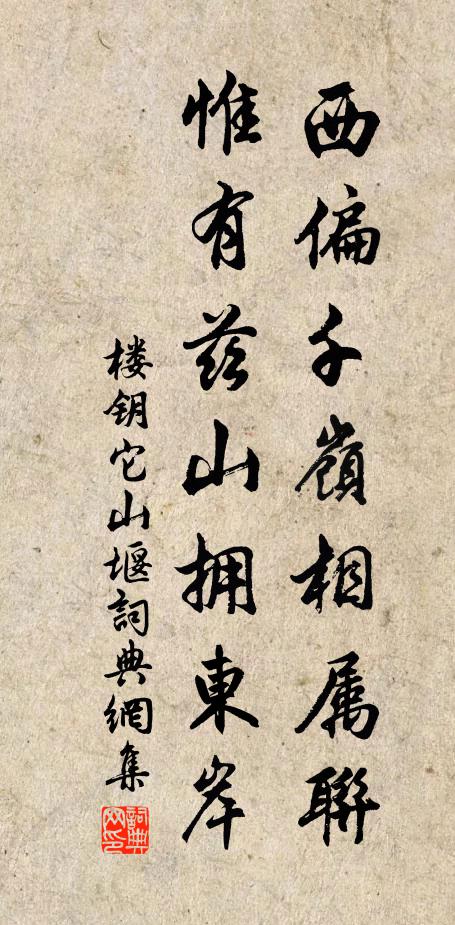 西偏千嶺相属聯
惟有茲山拥東岸
楼钥它山堰詞典網集
詞典
网印